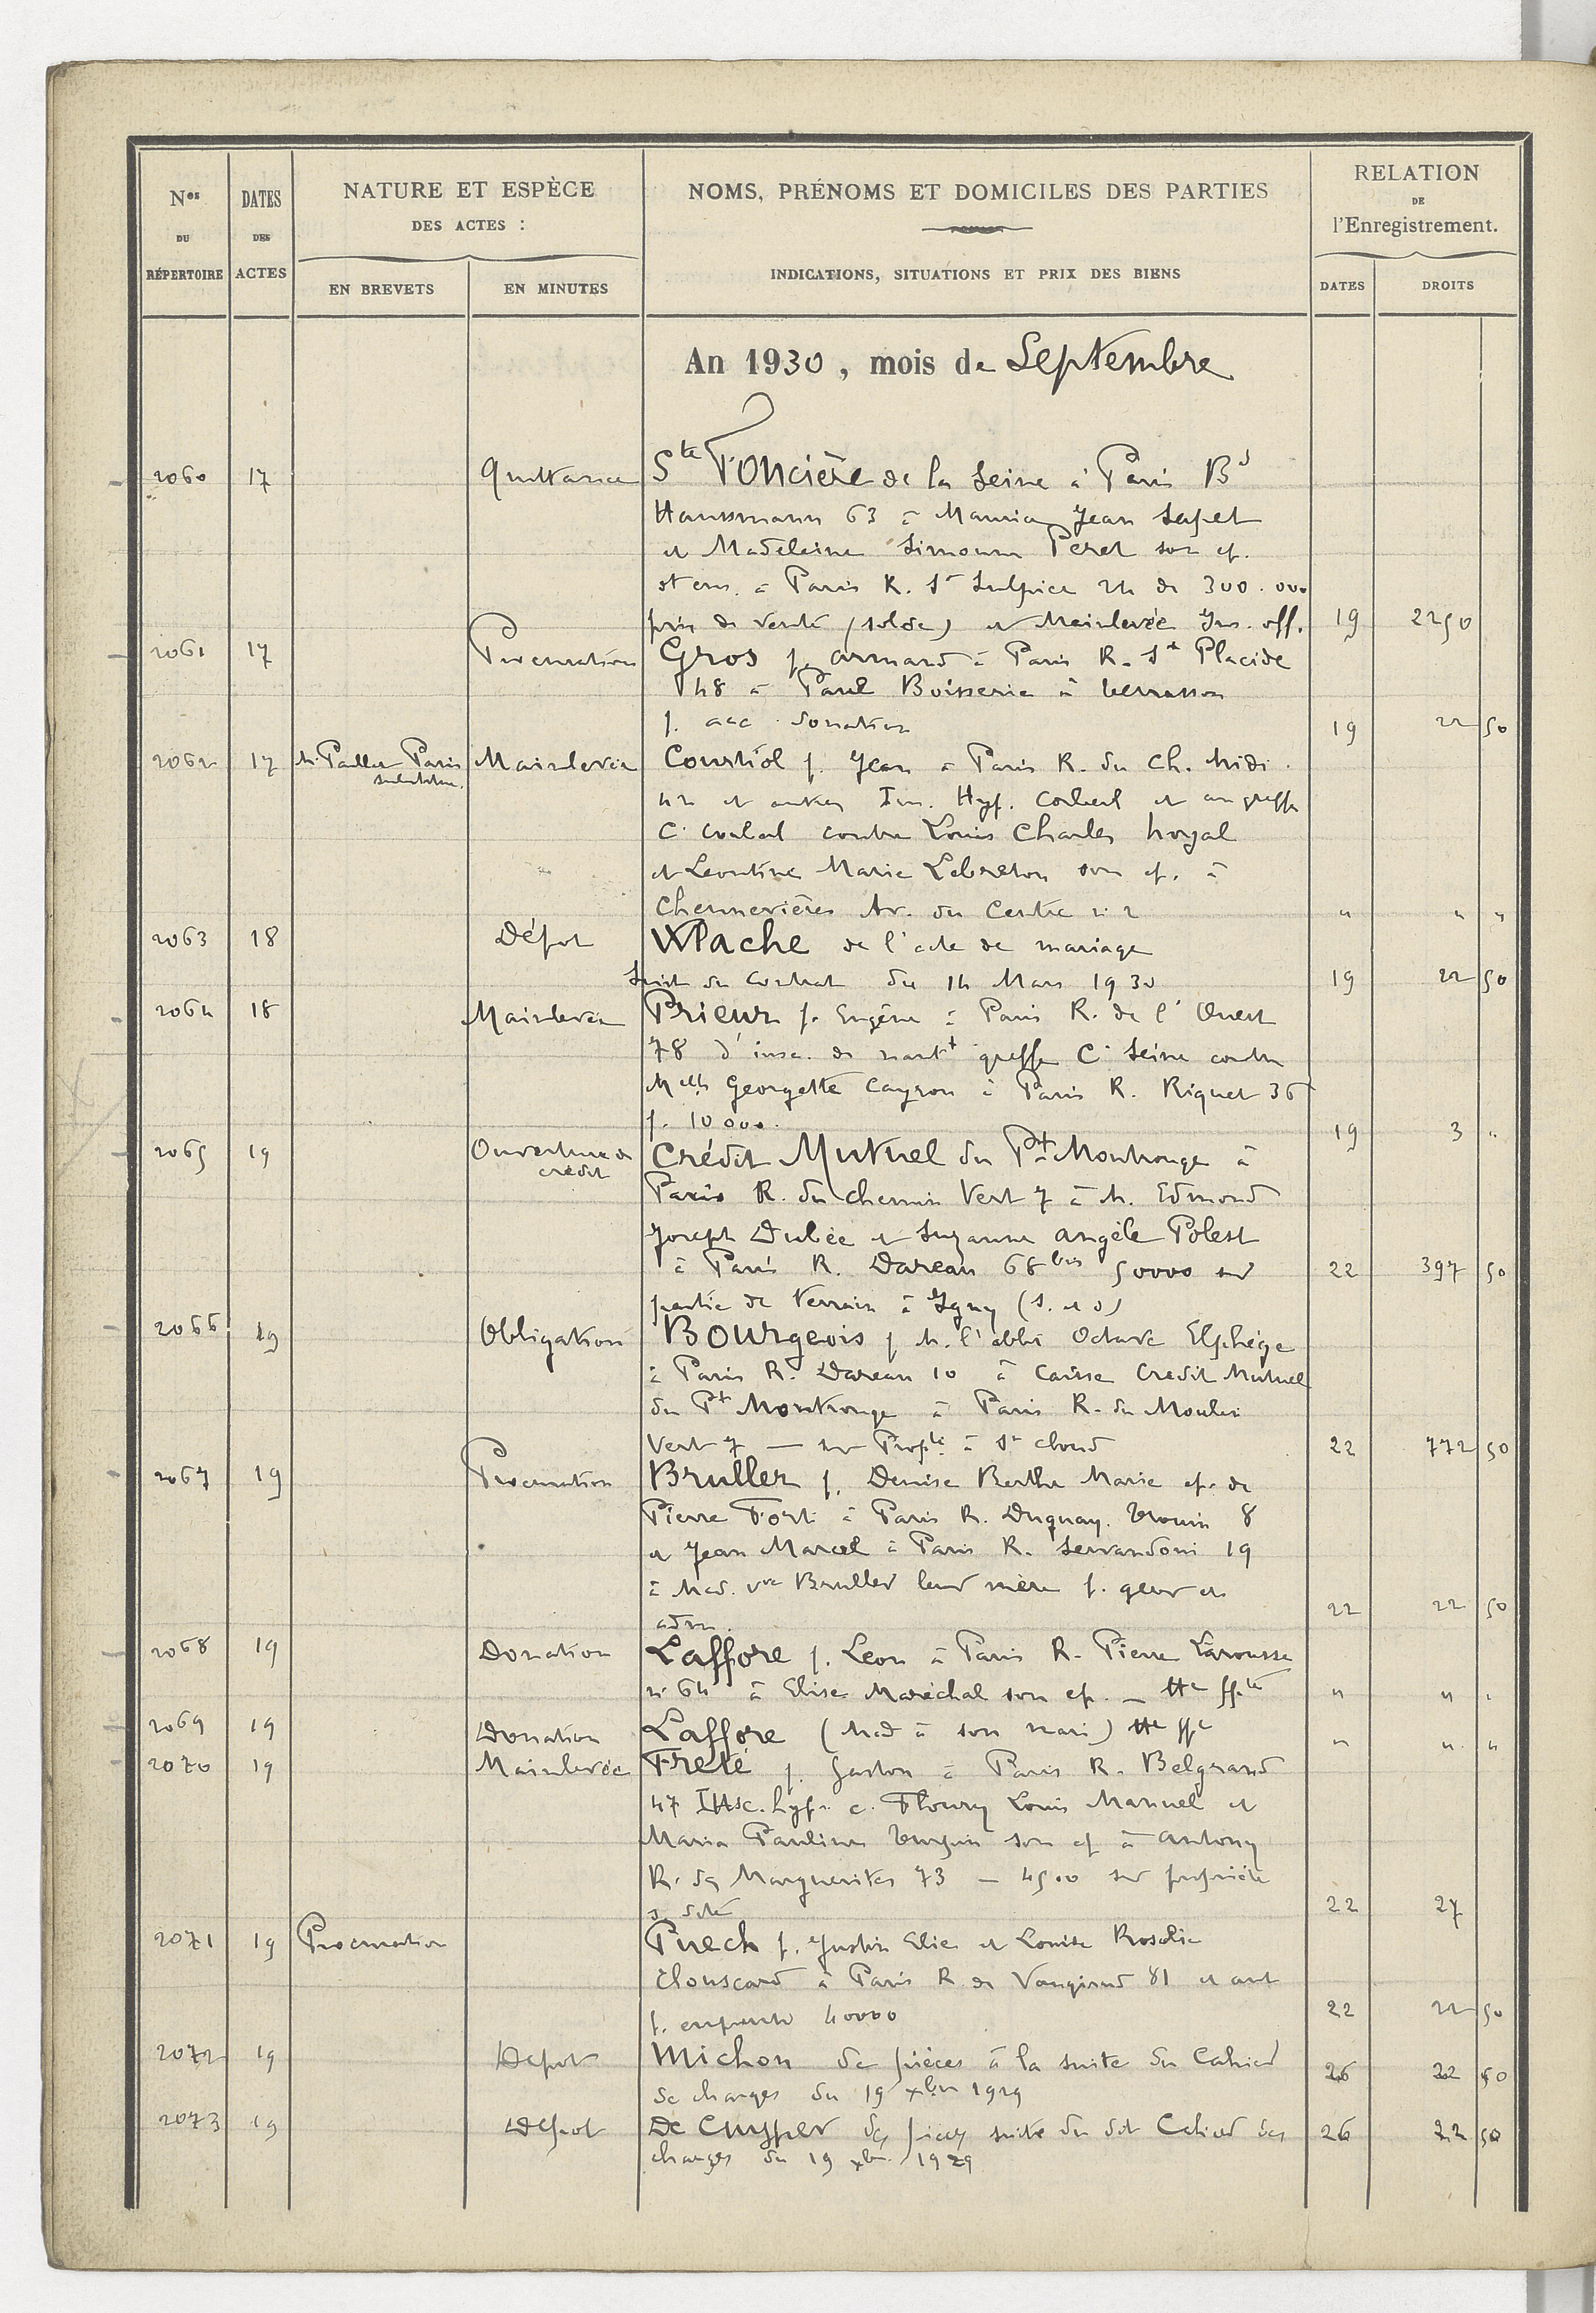 Nos DU RÉPERTOIRE
DATES DES ACTES
NATURE ET ESPÈCE DES ACTES :
EN BREVETS
EN MINUTES
NOMS, PRÉNOMS ET DOMICILES DES PARTIES
INDICATIONS, SITUATIONS ET PRIX DES BIENS
RELATION DE l'Enregistrement.
DATES
DROITS
An 1930, mois de Septembre
2060 17 Quittance Sté Foncière de la Seine à Paris Bd
Haussmann 63 à Jean
et Madeleine Simonne Peret son ep.
à Paris R. St Sulpice 24 de 300.000
prix de vente (solde) et Mainlevée Ins. off. 19 2250
2061 17 Procuration Gros p. Armand à Paris R. St Placide
48 à Paul Boisserie à Terrasson
p. acc. donation 19 22 50
2062 17 M. Paris substituant Mainlevée Courtiol p. Jean à Paris R. du Ch. Midi
42 et autres Ins. Hyp. Corbeil et au greffe
C. Corbeil contre Louis Charles
et Leontine Marie Lebreton son ep. à
Chennevières Av. du Centre n. 2 " " "
2063 18 Dépot Wlache de l'acte de mariage
suite du contrat du 14 Mars 1930 19 22 50
2064 18 Mainlevée Prieur p. Eugène à Paris R. de l'Ouest
78 d'insc. de nantt greffe C. Seine contre
Melle Georgette Cayron à Paris R. Riquet 36
p. 10000. 19 3 "
2065 19 Ouverture de crédit Crédit Mutuel du Pt Montrouge à
Paris R. du Chemin Vert 7 à M. Edmond
Joseph Dubée et Suzanne Angèle Polest
à Paris R. Dareau 68 bis 50000 sur 22 397 50
partie de terrain à Igny (S. et O)
2066 19 Obligation Bourgeois p. M. l'abbé Octave Elphège
à Paris R. Dareau 10 à Caisse Crédit Mutuel
du Pt Montrouge à Paris R. du Moulin
Vert 7 — sur Propté à St Cloud 22 772 50
2067 19 Procuration Bruller p. Denise Berthe Marie ep. de
Pierre Fort à Paris R. Duguay. Trouin 8
et Jean Marcel à Paris R. Servandoni 19
à Mad. vve Bruller leur mère p. gerer et
adm. 22 22 50
2068 19 Donation Laffore p. Leon à Paris R. Pierre Larousse
n. 64 à Elise Maréchal son ep. — " " "
2069 19 Donation Laffore (Mad à son mari) " " "
2070 19 Mainlevée Freté p. Gaston à Paris R. Belgrand
47 Insc. hyp. c. Floury Louis Manuel et
Maria Pauline son ep à Antony
R. des Marguerites 73 — 4500 sur propriété
22 27
2071 19 Procuration Puech p. Justin Elie et Louise Rosalie
Clouscard à Paris R de Vaugirard 81 et aut
p. emprunt 40000 22 22 50
2072 19 Depot Michon de pièces à la suite du Cahier
de charges du 19 xbre 1929 26 22 50
2073 19 Depot De Cuyper des pièces suite du dit Cahier des
charges du 19 xbre 1929 26 22 50